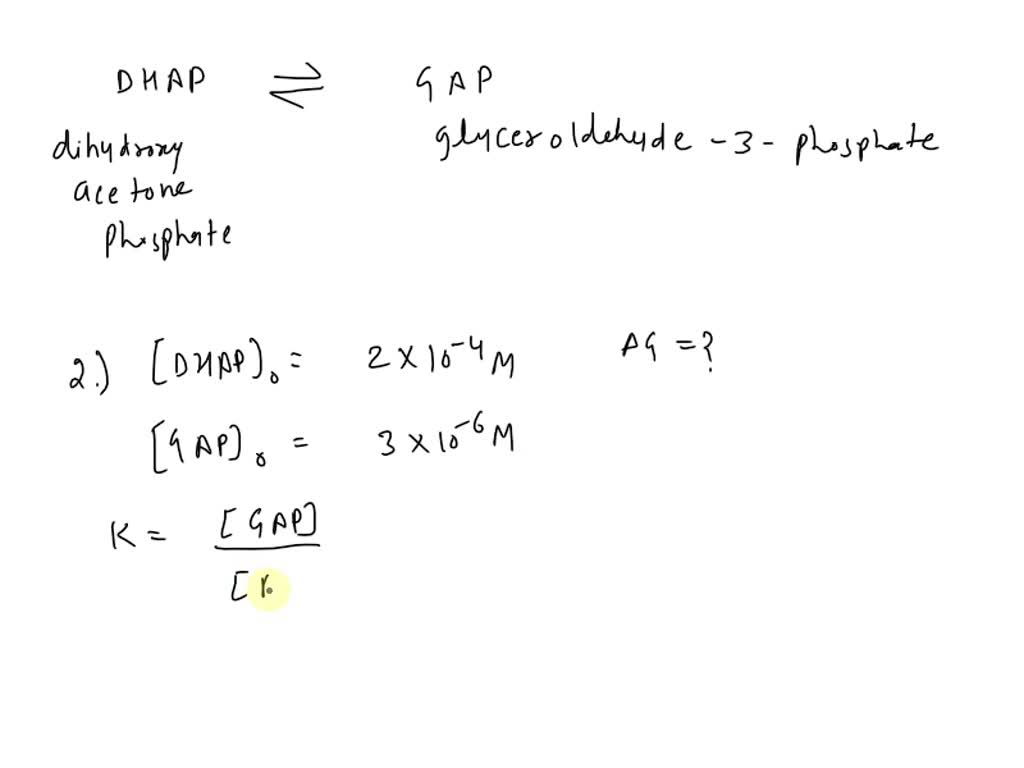 DHAP ⇌ GAP
dihydroxy acetone phosphate
glyceroldehyde - 3 - phosphate
2.) [DHAP]₀ = 2 × 10⁻⁴ M ΔG = ?
[GAP]₀ = 3 × 10⁻⁶ M
K = [GAP] / [